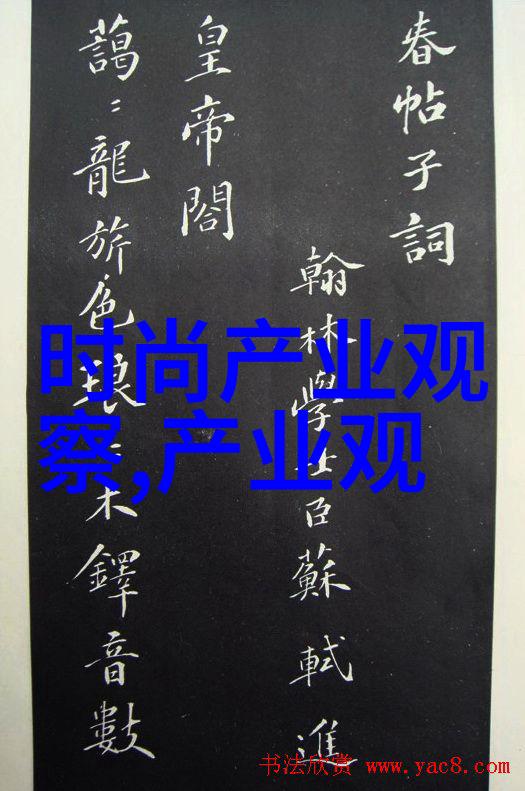 春帖子詞
翰林學士臣蘇軾進
皇帝閤
藹〻龍旂色琅〻木鐸音數
时尚产业观
察,产业观
书法欣赏 www.yac8.com